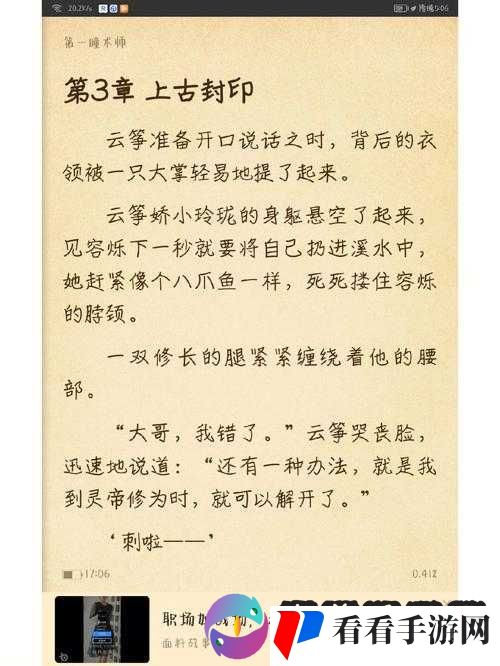 20.2K/s
第一瞳术师
第3章 上古封印
云筝准备开口说话之时，背后的衣
领被一只大掌轻易地提了起来。
云筝娇小玲珑的身躯悬空了起来，
见容烁下一秒就要将自己扔进溪水中，
她赶紧像个八爪鱼一样，死死搂住容烁
的脖颈。
一双修长的腿紧紧缠绕着他的腰
部。
“大哥，我错了。”云筝哭丧脸，
迅速地说道：“还有一种办法，就是我
到灵帝修为时，就可以解开了。”
‘刺啦——’
17:06
0.41%
职场
面料故事
看看手游网
www.kkssyy.com